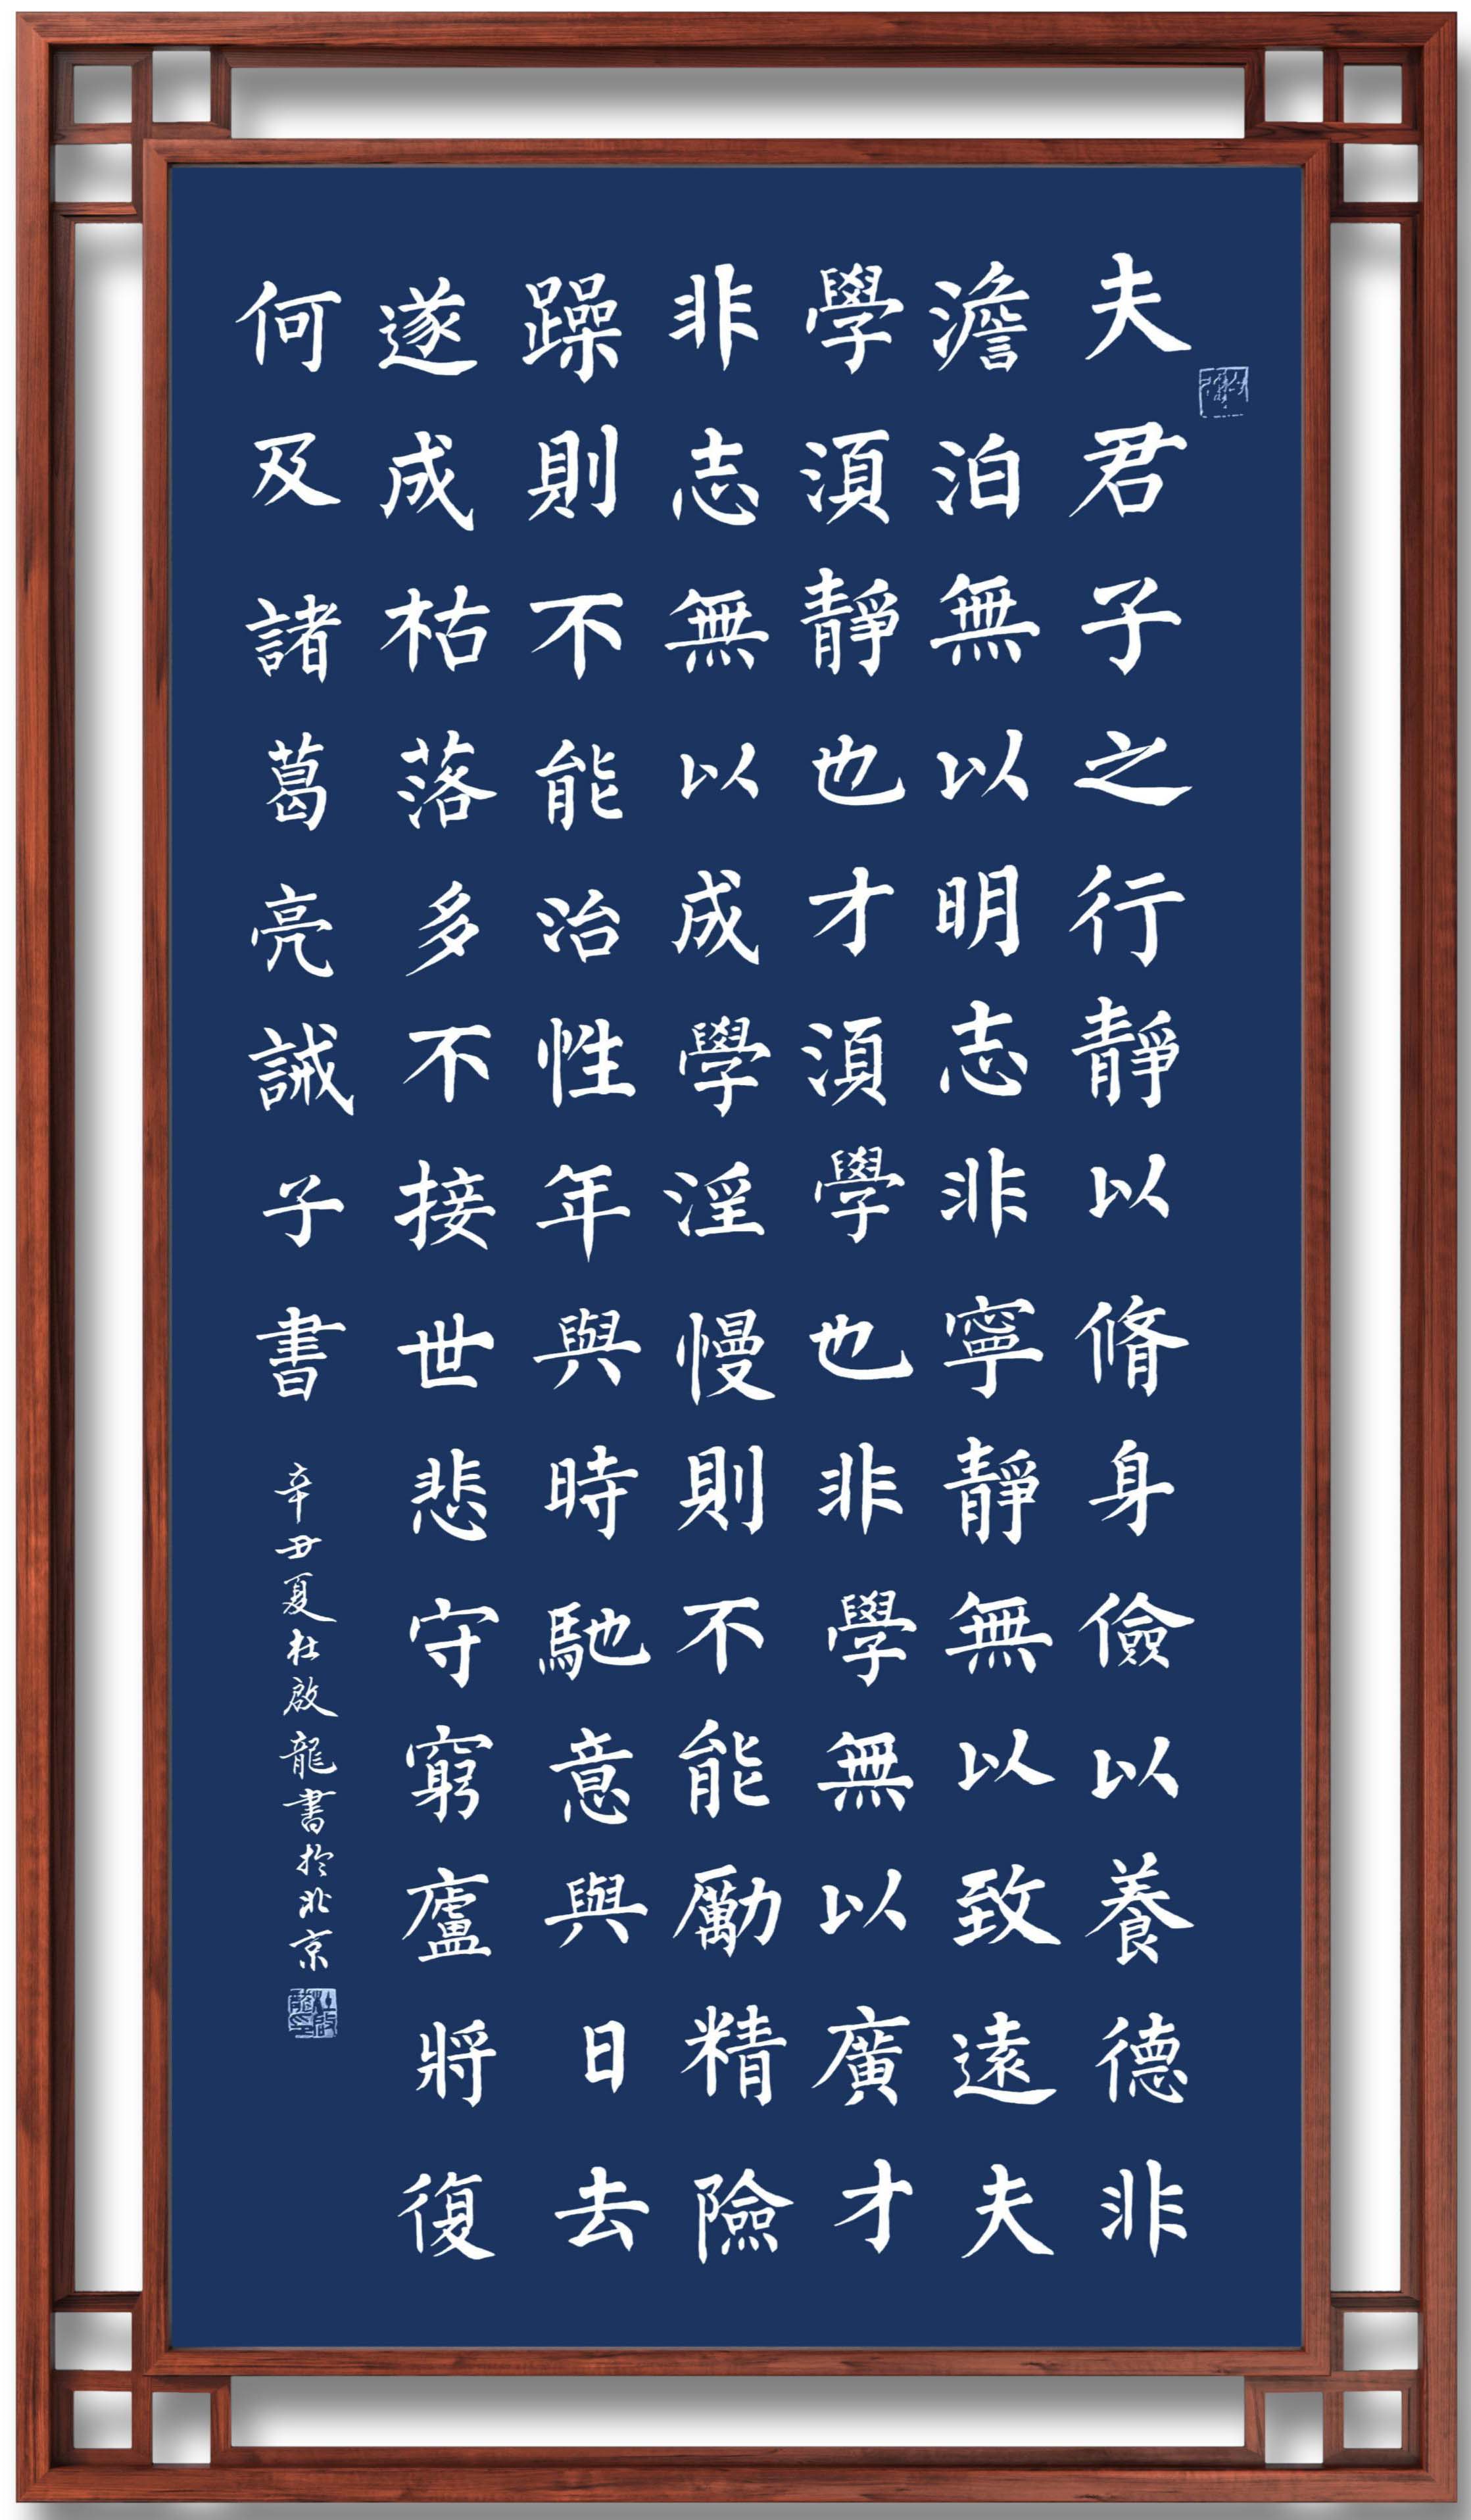 夫君子之行靜以脩身儉以養德非
澹泊無以明志非寧靜無以致遠夫
學須靜也才須學也非學無以廣才
非志無以成學淫慢則不能勵精險
躁則不能治性年與時馳意與日去
遂成枯落多不接世悲守窮廬將復
何及諸葛亮誡子書
辛丑夏杜啟龍書於北京